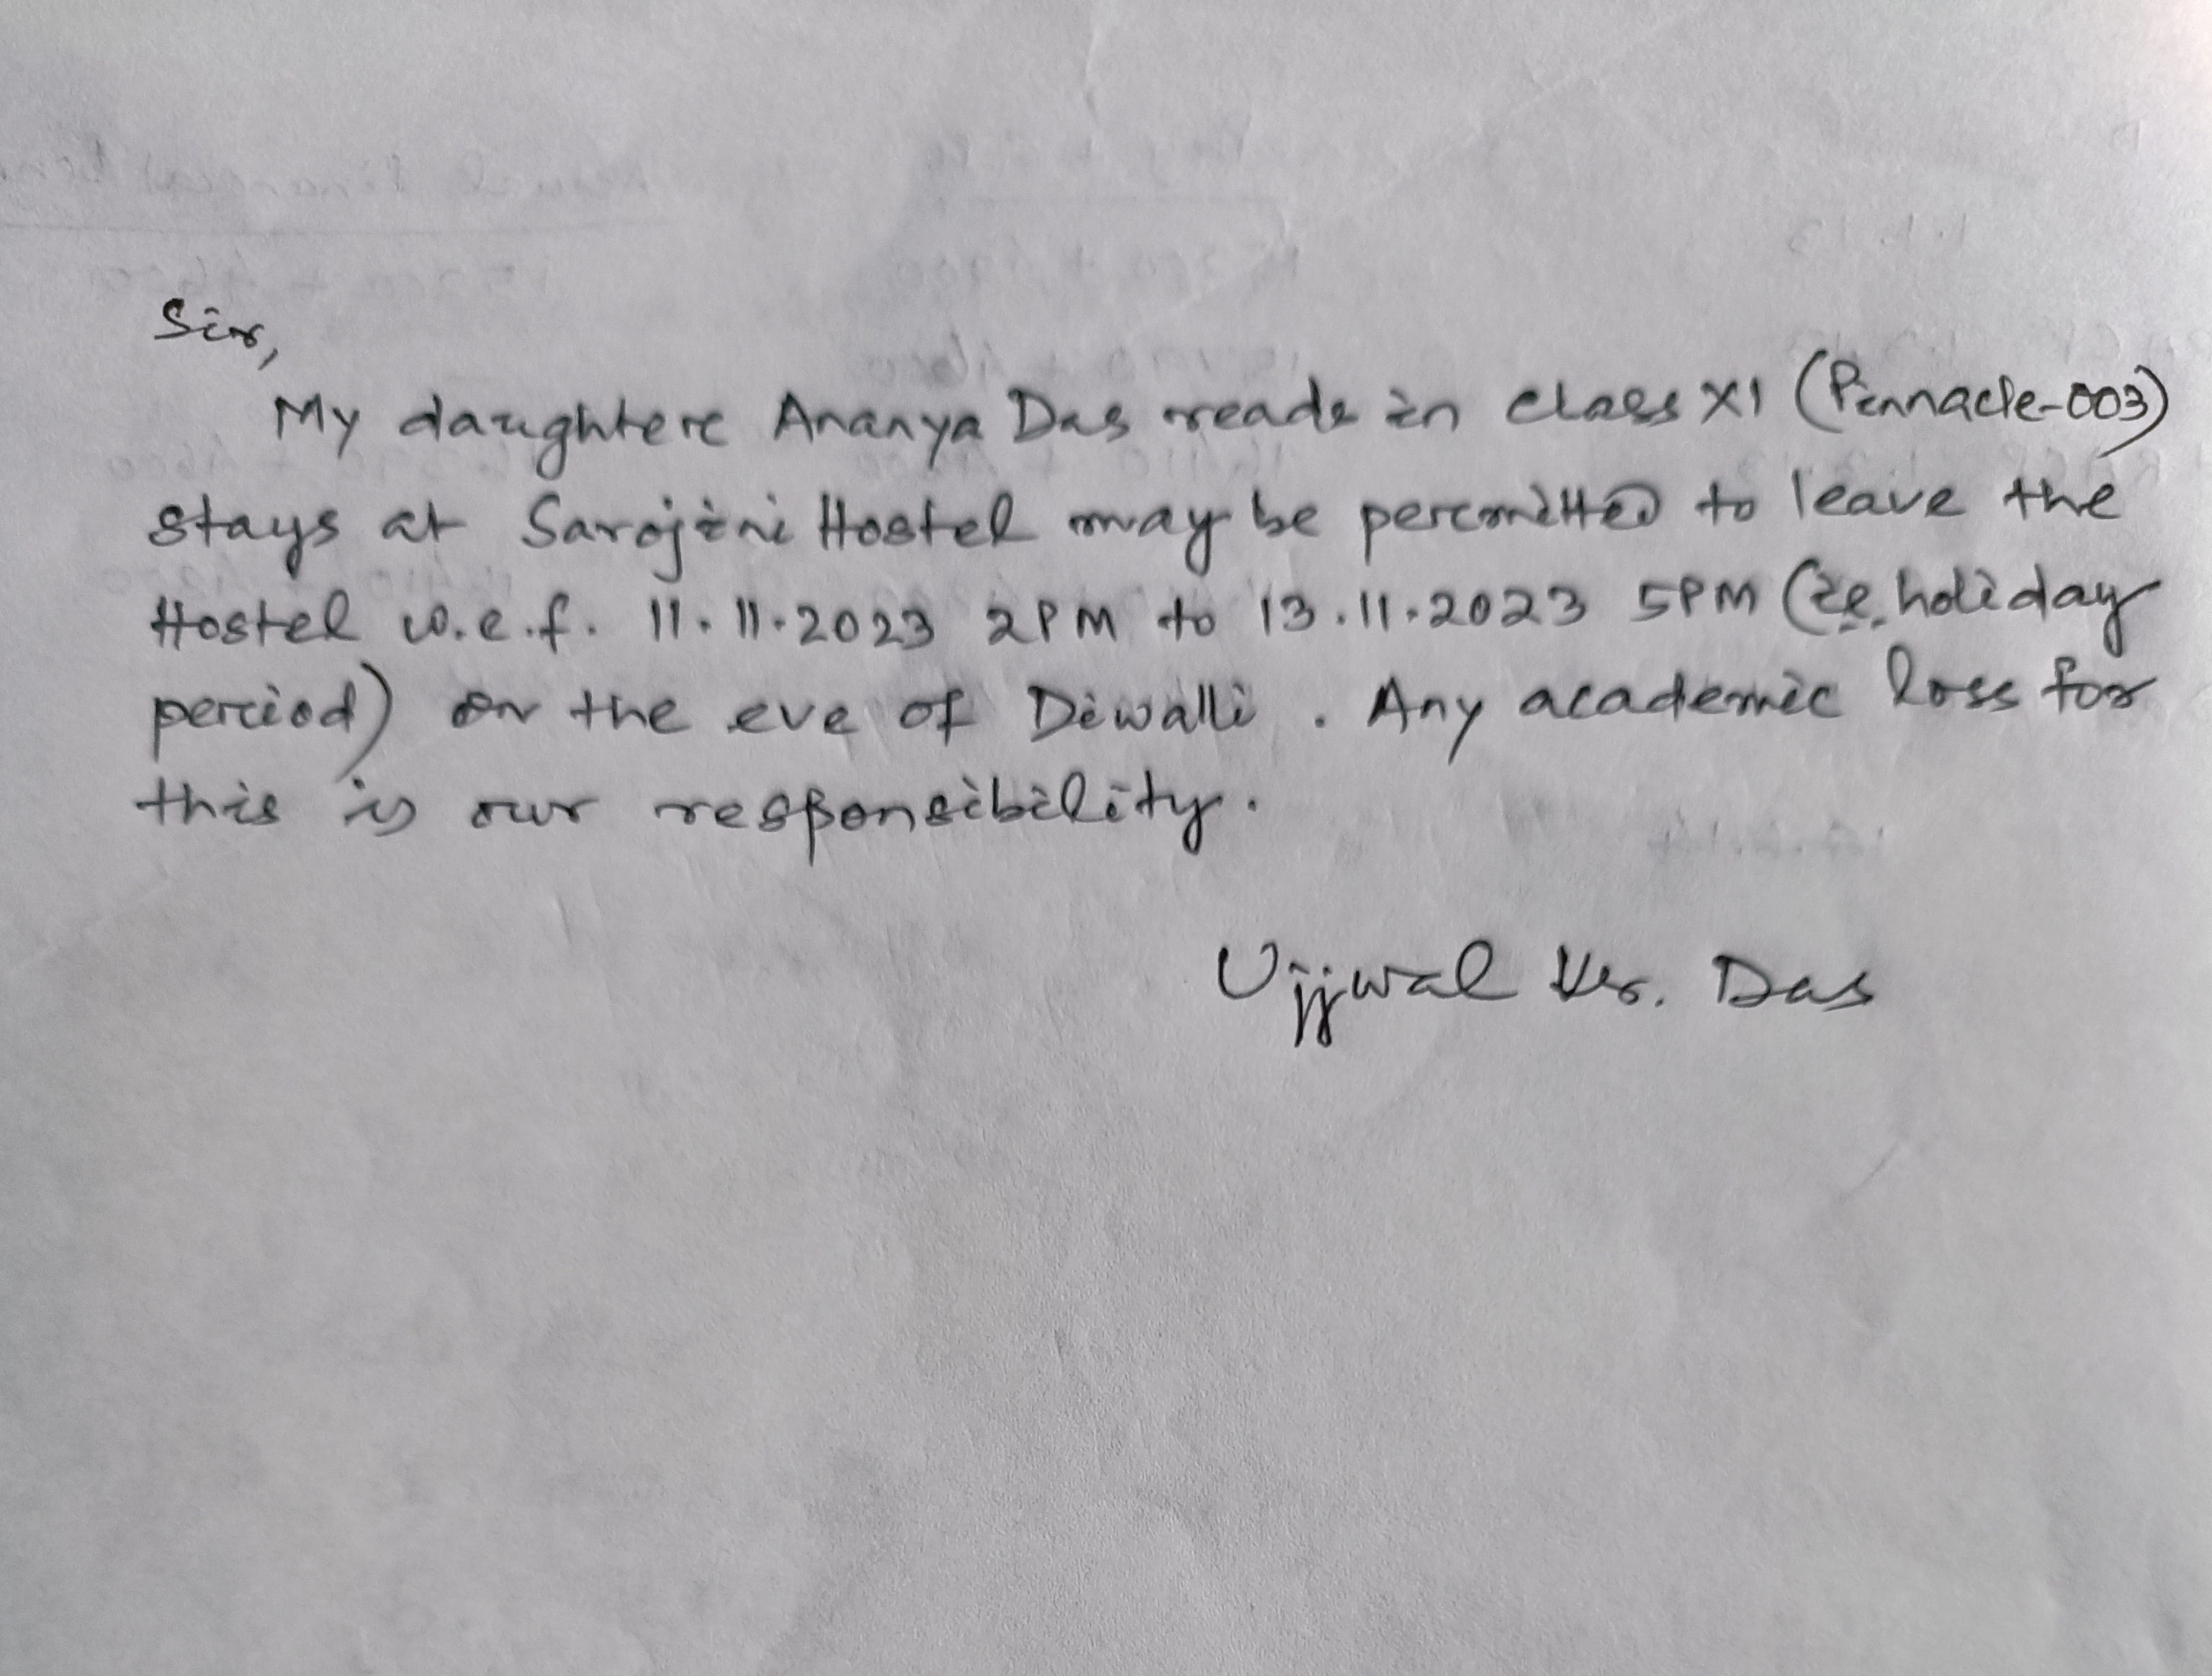 Sir,
My daughter Ananya Das reads in class XI (Pinnacle-003)
stays at Sarojini Hostel may be permitted to leave the
Hostel w.e.f. 11.11.2023 2PM to 13.11.2023 5PM (ie. holiday
period) on the eve of Diwalli. Any academic loss for
this is our responsibility.
Ujjwal Kr. Das